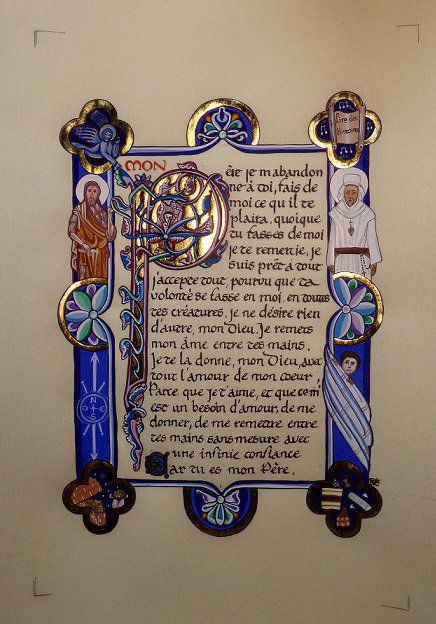 MON
Père je m'abandon
ne à toi, fais de
moi ce qu'il te
plaira, quoique
tu fasses de moi
je te remercie, je
suis prêt à tout
j'accepte tout, pourvu que ta
volonté se fasse en moi, en toutes
tes créatures, je ne désire rien
d'autre, mon Dieu, Je remets
mon âme entre tes mains,
Je te la donne, mon Dieu, avec
tout l'amour de mon coeur,
Parce que je t'aime, et que cem'
est un besoin d'amour, de me
donner, de me remettre entre
tes mains sans mesure avec
une infinie confiance
Car tu es mon Père.